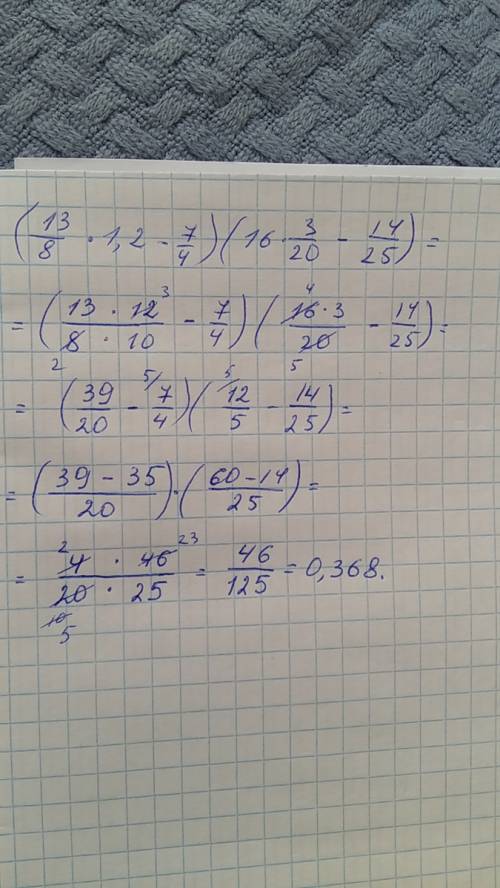 (13/8 · 1,2 - 7/4)(16 · 3/20 - 14/25) =
= (13 · 12 3/8 · 10 2 - 7/4)(4 16 · 3/20 5 - 14/25) =
= (39/20 - 5/ 7/4)(5/ 12/5 - 14/25) =
= (39 - 35/20) · (60 - 14/25) =
= 2 4 · 46 23/20 · 25 10 5 = 46/125 = 0,368.